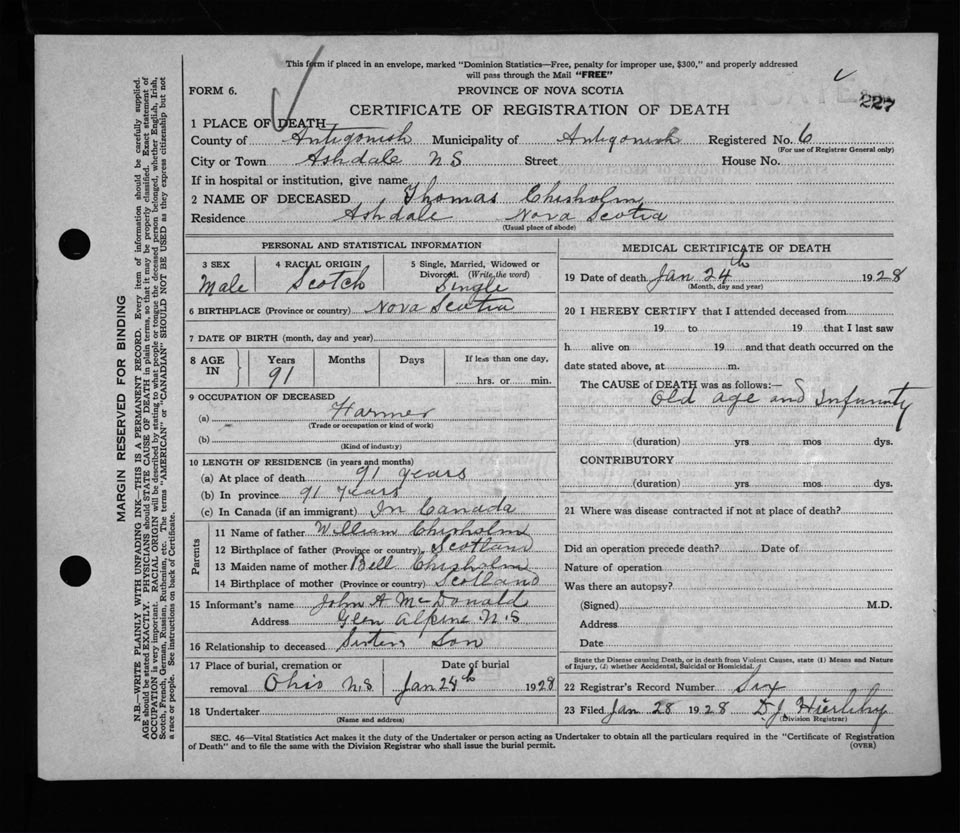 This form if placed in an envelope, marked "Dominion Statistics—Free, penalty for improper use, $300," and properly addressed
will pass through the Mail "FREE"
FORM 6.
PROVINCE OF NOVA SCOTIA
227
CERTIFICATE OF REGISTRATION OF DEATH
1 PLACE OF DEATH
County of Antigonish Municipality of Antigonish Registered No. 6
(For use of Registrar General only)
City or Town Ashdale N S Street House No.
If in hospital or institution, give name
2 NAME OF DECEASED Thomas Chisholm
Residence Ashdale Nova Scotia
(Usual place of abode)
PERSONAL AND STATISTICAL INFORMATION
3 SEX 4 RACIAL ORIGIN 5 Single, Married, Widowed or
Divorced. (Write the word)
Male Scotch Single
6 BIRTHPLACE (Province or country) Nova Scotia
7 DATE OF BIRTH (month, day and year)
8 AGE IN Years Months Days If less than one day,
91 hrs. or min.
9 OCCUPATION OF DECEASED
(a) Farmer
(Trade or occupation or kind of work)
(b)
(Kind of industry)
10 LENGTH OF RESIDENCE (in years and months)
(a) At place of death 91 years
(b) In province 91 years
(c) In Canada (if an immigrant) In Canada
Parents
11 Name of father William Chisholm
12 Birthplace of father (Province or country) Scotland
13 Maiden name of mother Bell Chisholm
14 Birthplace of mother (Province or country) Scotland
15 Informant's name John A McDonald
Address Glen Alpine N.S
16 Relationship to deceased Sisters Son
17 Place of burial, cremation or Date of burial
removal Ohio N.S Jan 24th 1928
18 Undertaker
(Name and address)
MEDICAL CERTIFICATE OF DEATH
19 Date of death Jan 24th 1928
(Month, day and year)
20 I HEREBY CERTIFY that I attended deceased from
19 to 19 that I last saw
h alive on 19 and that death occurred on the
date stated above, at m.
The CAUSE of DEATH was as follows:—
Old age and Infirmity
(duration) yrs. mos. dys.
CONTRIBUTORY
(duration) yrs. mos. dys.
21 Where was disease contracted if not at place of death?
Did an operation precede death? Date of
Nature of operation
Was there an autopsy?
(Signed) M.D.
Address
Date
State the Disease causing Death, or in death from Violent Causes, state (1) Means and Nature
of Injury, (2) whether Accidental, Suicidal or Homicidal.
22 Registrar's Record Number Six
23 Filed Jan 28 1928 D.J. Hierlihy
(Division Registrar)
SEC. 46—Vital Statistics Act makes it the duty of the Undertaker or person acting as Undertaker to obtain all the particulars required in the "Certificate of Registration
of Death" and to file the same with the Division Registrar who shall issue the burial permit.
(OVER)
MARGIN RESERVED FOR BINDING
N.B.—WRITE PLAINLY WITH UNFADING INK—THIS IS A PERMANENT RECORD. Every item of information should be carefully supplied.
AGE should be stated EXACTLY. PHYSICIANS should STATE CAUSE OF DEATH in plain terms, so that it may be properly classified. Exact statement of
OCCUPATION is very important. RACIAL ORIGIN will be described by stating to what people or tongue the deceased person belonged, whether English, Irish,
Scotch, French, German, Russian, Ruthenian, etc. The terms "AMERICAN" or "CANADIAN" SHOULD NOT BE USED as they express citizenship but not
a race or people. See instructions on back of Certificate.